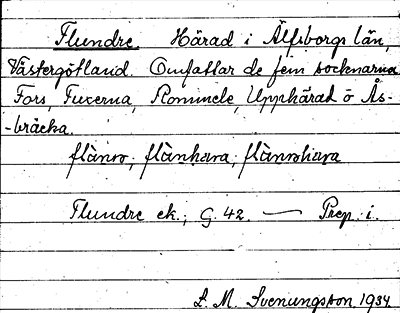 Flundre. Härad i Älfsborgs län,
Västergötland. Omfattar de fem socknarna
Fors, Fuxerna, Rommele, Upphärad o Ås-
-bräcka.
flànrɷ; flànhæra; flànrɷhæra
Flundre ek.; G. 42. — Prep. i.
L. M. Svenungsson 1934